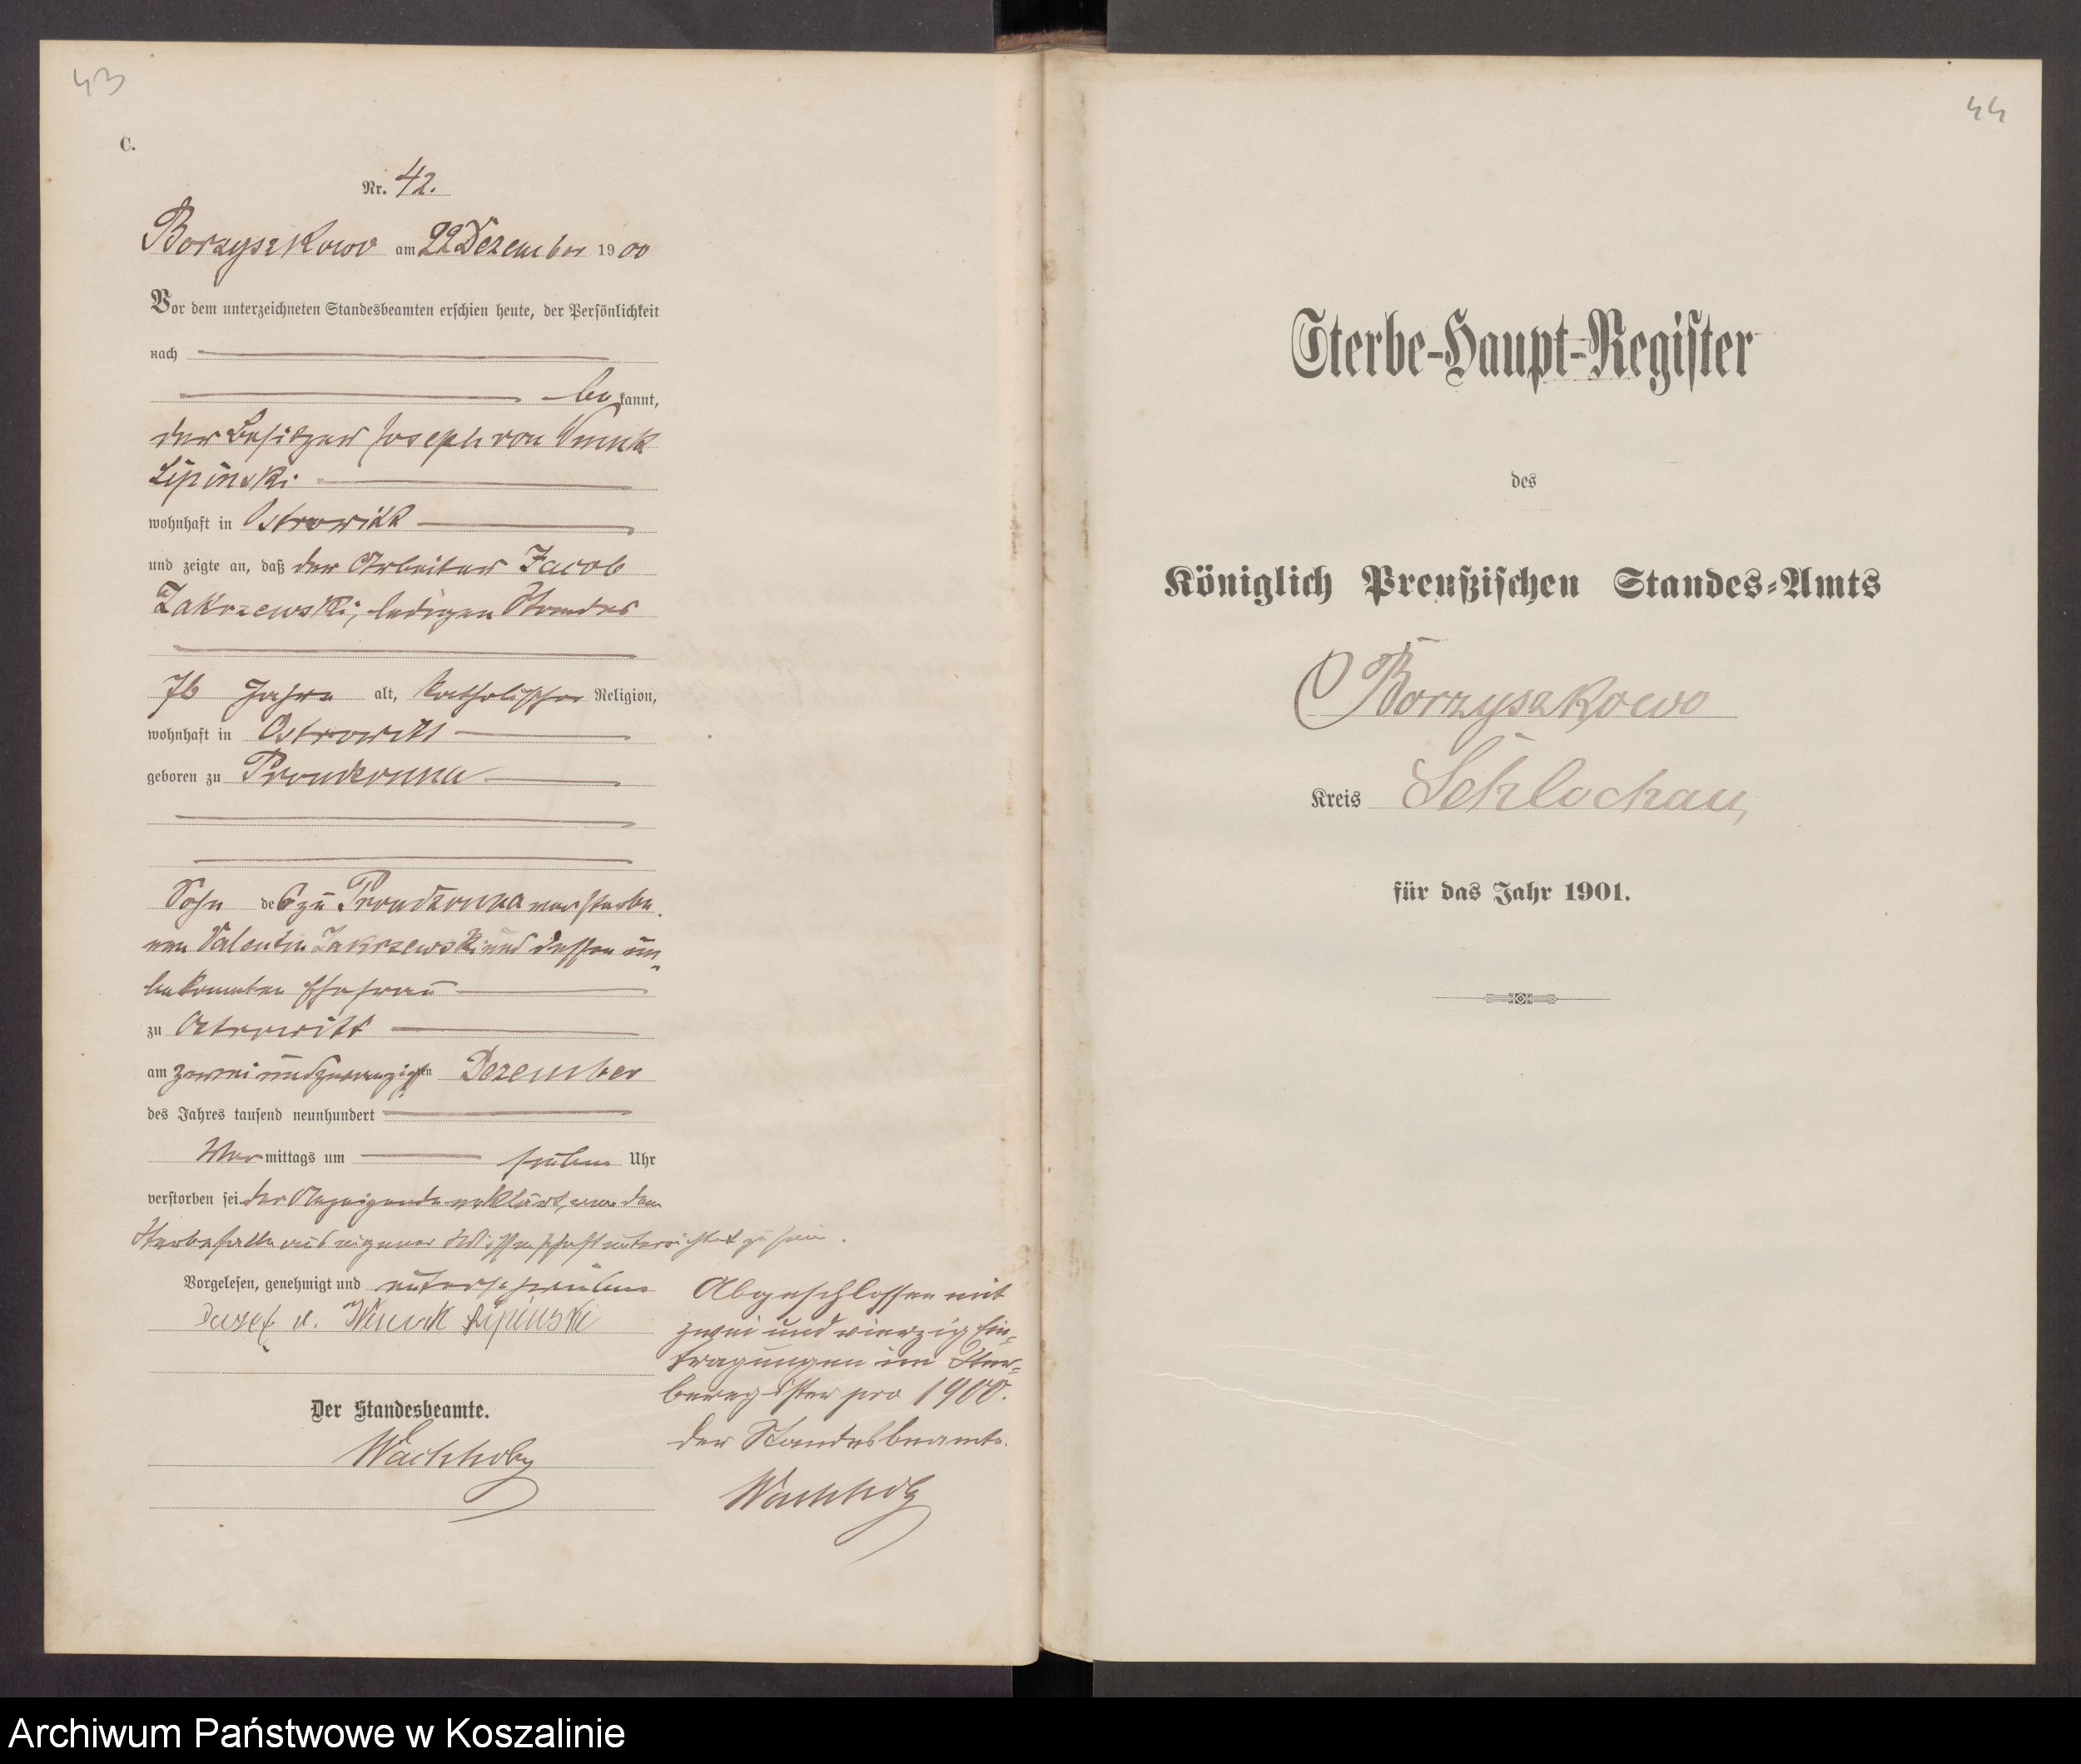 43
C.
Nr. 42.
Borzyszkowo am 22 Dezember 1900
Vor dem unterzeichneten Standesbeamten erschien heute, der Persönlichkeit
nach
be kannt,
der Besitzer Joseph von Wnuk
Lipinski
wohnhaft in Ostrowitt
und zeigte an, daß der Arbeiter Jacob
Zakrzewski, ledigen Standes
76 Jahre alt, katholischer Religion,
wohnhaft in Ostrowitt
geboren zu Prondzonna
Sohn des zu Prondzonna verstorbe-
nen Valentin Zakrzewski und dessen un-
bekannten Ehefrau
zu Ostrowitt
am zwei und zwanzigsten Dezember
des Jahres tausend neunhundert
Vor mittags um sieben Uhr
verstorben sei der Anzeigende erklärt, von dem
Sterbefalle aus eigener Wissenschaft unterrichtet zu sein.
Vorgelesen, genehmigt und unterschrieben
Juzef v. Wnuck Lipinski
Der Standesbeamte.
Wachholz
Abgeschlossen mit
zwei und vierzig Ein-
tragungen im Ster-
beregister pro 1900.
der Standesbeamte.
Wachholz
44
Sterbe-Haupt-Register
des
Königlich Preußischen Standes-Amts
Borzyszkowo
Kreis Schlochau,
für das Jahr 1901.
Archiwum Państwowe w Koszalinie